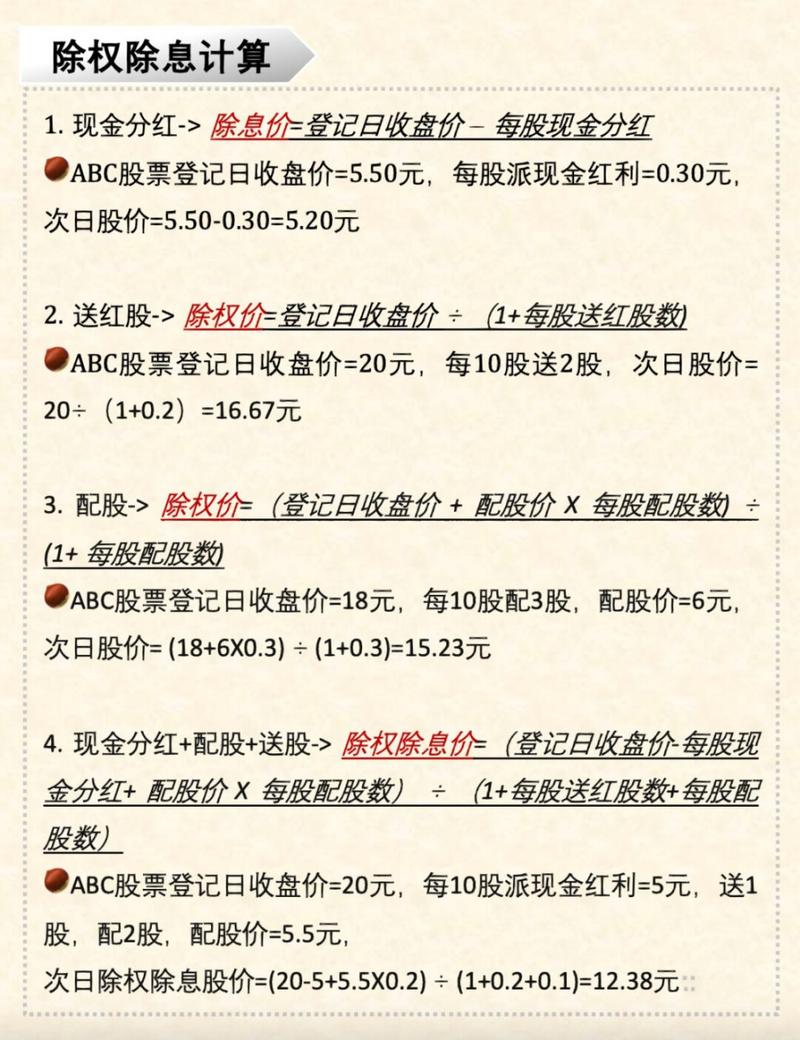 除权除息计算
1. 现金分红-> 除息价=登记日收盘价 – 每股现金分红
ABC股票登记日收盘价=5.50元，每股派现金红利=0.30元，
次日股价=5.50-0.30=5.20元
2. 送红股-> 除权价=登记日收盘价 ÷ （1+每股送红股数)
ABC股票登记日收盘价=20元，每10股送2股，次日股价=
20÷（1+0.2）=16.67元
3. 配股-> 除权价=（登记日收盘价 + 配股价 X 每股配股数) ÷
(1+ 每股配股数)
ABC股票登记日收盘价=18元，每10股配3股，配股价=6元，
次日股价= (18+6X0.3) ÷ (1+0.3)=15.23元
4. 现金分红+配股+送股-> 除权除息价=（登记日收盘价-每股现
金分红+ 配股价 X 每股配股数） ÷ （1+每股送红股数+每股配
股数）
ABC股票登记日收盘价=20元，每10股派现金红利=5元，送1
股，配2股，配股价=5.5元，
次日除权除息股价=(20-5+5.5X0.2) ÷ (1+0.2+0.1)=12.38元